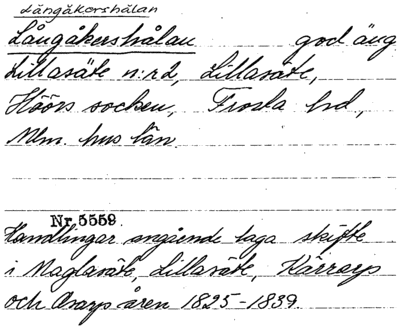 Långåkershålan
Långåkershålan god äng
Lillasäte n:r 2, Lillasäte,
Höörs socken, Frosta hd,
Mlm. hus län
Nr. 5559.
Handlingar angående laga skifte
i Maglasäte, Lillasäte, Kärrarp
och Orarp åren 1825-1839.